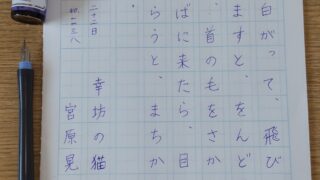 白がって、飛び
ますと、をんど
、首のも、さか
ばに来たら、目
らうと、まちか
二十二日
幸坊の猫
宮原晃